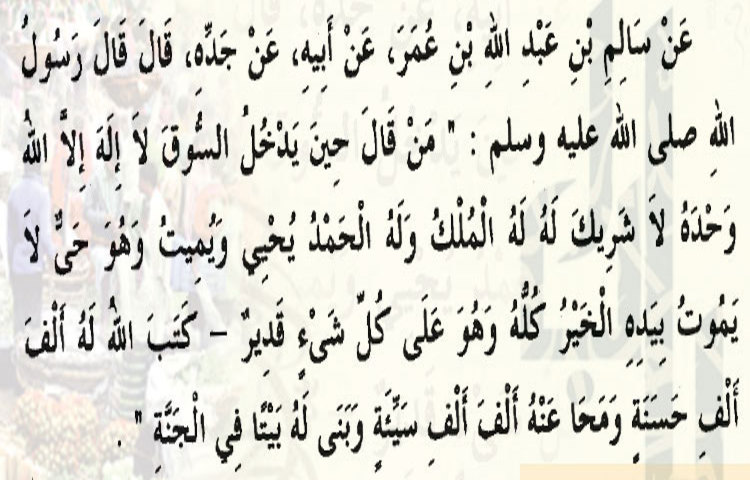 عَنْ سَالِمِ بْنِ عَبْدِ اللهِ بْنِ عُمَرَ، عَنْ أَبِيهِ، عَنْ جَدِّهِ، قَالَ قَالَ رَسُولُ
اللهِ صلى الله عليه وسلم : " مَنْ قَالَ حِينَ يَدْخُلُ السُّوقَ لاَ إِلَهَ إِلاَّ اللهُ
وَحْدَهُ لاَ شَرِيكَ لَهُ لَهُ الْمُلْكُ وَلَهُ الْحَمْدُ يُحْيِي وَيُمِيتُ وَهُوَ حَىٌّ لاَ
يَمُوتُ بِيَدِهِ الْخَيْرُ كُلُّهُ وَهُوَ عَلَى كُلِّ شَىْءٍ قَدِيرٌ – كَتَبَ اللهُ لَهُ أَلْفَ
أَلْفِ حَسَنَةٍ وَمَحَا عَنْهُ أَلْفَ أَلْفِ سَيِّئَةٍ وَبَنَى لَهُ بَيْتًا فِي الْجَنَّةِ " .